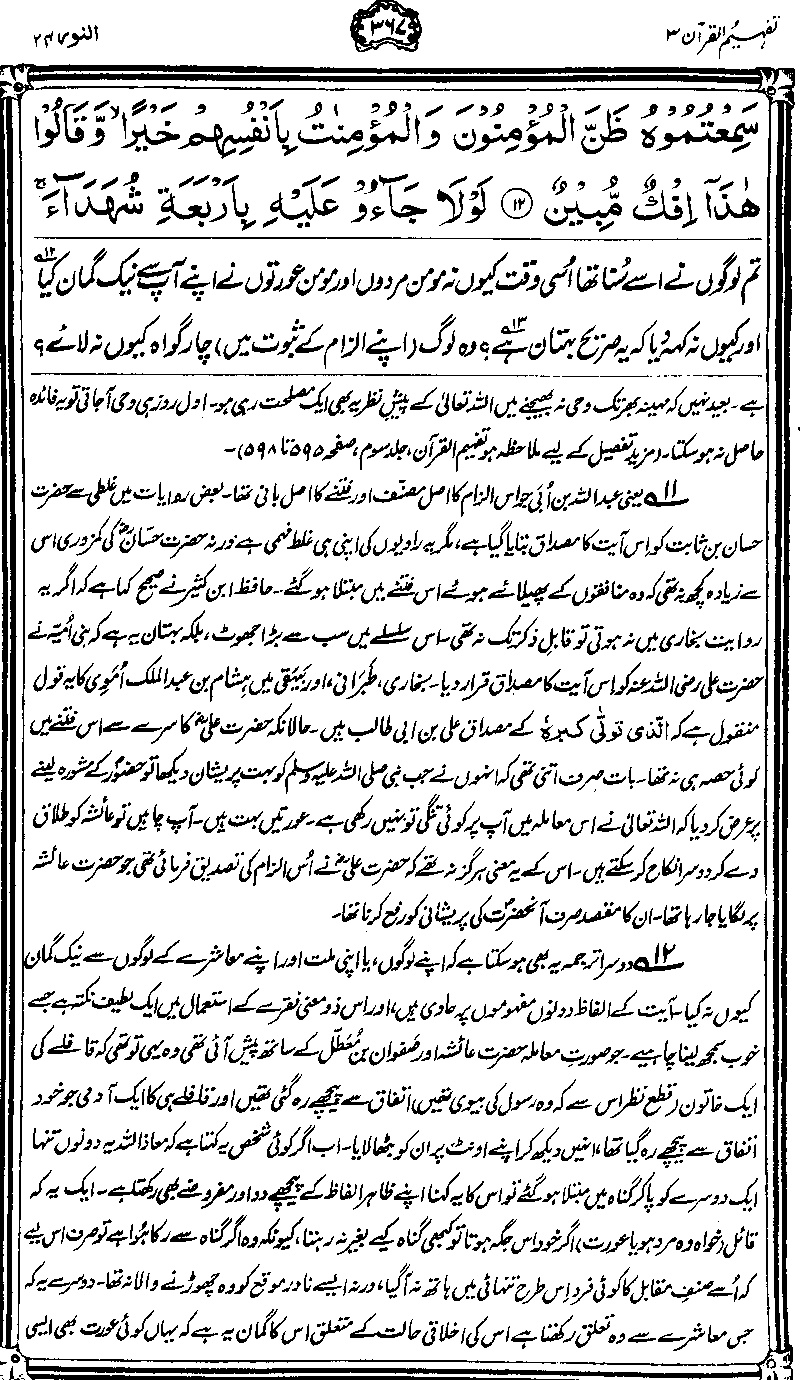 تفہیم القرآن ۳
۳۶۷
النور ۲۴
سَمِعْتُمُوْهُ ظَنَّ الْمُؤْمِنُوْنَ وَالْمُؤْمِنٰتُ بِاَنْفُسِهِمْ خَيْرًا ۙ وَّقَالُوْا
هٰذَآ اِفْكٌ مُّبِيْنٌ ﴿۱۲﴾ لَوْلَا جَآءُوْ عَلَيْهِ بِاَرْبَعَةِ شُهَدَآءَ ۚ
تم لوگوں نے اسے سُنا تھا اُسی وقت کیوں نہ مومن مردوں اور مومن عورتوں نے اپنے آپ سے نیک گمان کیا ۱۲
اور کیوں نہ کہہ دیا کہ یہ صریح بہتان ہے ۱۳؟ وہ لوگ (اپنے الزام کے ثبوت میں) چار گواہ کیوں نہ لائے؟
ہے۔ بعید نہیں کہ مہینہ بھر تک وحی نہ بھیجنے میں اللہ تعالیٰ کے پیشِ نظر یہ بھی ایک مصلحت رہی ہو۔ اول روز ہی وحی آجاتی تو یہ فائدہ
حاصل نہ ہو سکتا۔ (مزید تفصیل کے لیے ملاحظہ ہو تفہیم القرآن، جلد سوم، صفحہ ۵۹۵ تا ۵۹۸)۔
۱۱ یعنی عبداللہ بن اُبَی جو اس الزام کا اصل مصنّف اور فتنے کا اصل بانی تھا۔ بعض روایات میں غلطی سے حضرت
حسان بن ثابت کو اِس آیت کا مصداق بتایا گیا ہے، مگر یہ راویوں کی اپنی ہی غلط فہمی ہے ورنہ حضرت حسّانؓ کی کمزوری اس
سے زیادہ کچھ نہ تھی کہ وہ منافقوں کے پھیلائے ہوئے اس فتنے میں مبتلا ہو گئے۔ حافظ ابن کثیر نے صحیح کہا ہے کہ اگر یہ
روایت بخاری میں نہ ہوتی تو قابلِ ذکر تک نہ تھی۔ اس سلسلے میں سب سے بڑا جھوٹ، بلکہ بہتان یہ ہے کہ بنی اُمیّہ نے
حضرت علی رضی اللہ عنہ کو اِس آیت کا مصداق قرار دیا۔ بخاری، طَبَرانی، اور بیہقی میں ہِشام بن عبدالملک اُمَوِی کا یہ قول
منقول ہے کہ الّذی تولّٰی کبرہٗ کے مصداق علی بن ابی طالب ہیں۔ حالانکہ حضرت علیؓ کا سرے سے اس فتنے میں
کوئی حصہ ہی نہ تھا۔ بات صرف اتنی تھی کہ انہوں نے جب نبی صلی اللہ علیہ وسلم کو بہت پریشان دیکھا تو حضورؐ کے مشورہ لینے
پر عرض کر دیا کہ اللہ تعالیٰ نے اس معاملہ میں آپ پر کوئی تنگی تو نہیں رکھی ہے۔ عورتیں بہت ہیں۔ آپ چاہیں تو عائشہ کو طلاق
دے کر دوسرا نکاح کر سکتے ہیں۔ اس کے یہ معنی ہرگز نہ تھے کہ حضرت علیؓ نے اُس الزام کی تصدیق فرمائی تھی جو حضرت عائشہ
پر لگایا جا رہا تھا۔ ان کا مقصد صرف آنحضرتؐ کی پریشانی کو رفع کرنا تھا۔
۱۲ دوسرا ترجمہ یہ بھی ہو سکتا ہے کہ اپنے لوگوں، یا اپنی ملت اور اپنے معاشرے کے لوگوں سے نیک گمان
کیوں نہ کیا۔ آیت کے الفاظ دونوں مفہوموں پر حاوی ہیں، اور اس ذو معنی فقرے کے استعمال میں ایک لطیف نکتہ ہے جسے
خوب سمجھ لینا چاہیے۔ جو صورتِ معاملہ حضرت عائشہ اور صَفوان بن مُعَطَّل کے ساتھ پیش آئی تھی وہ یہی تو تھی کہ قافلے کی
ایک خاتون (قطع نظر اس سے کہ وہ رسول کی بیوی تھیں) اتفاق سے پیچھے رہ گئی تھیں اور قافلے ہی کا ایک آدمی جو خود
اتفاق سے پیچھے رہ گیا تھا، انہیں دیکھ کر اپنے اونٹ پر ان کو بٹھا لایا۔ اب اگر کوئی شخص یہ کہتا ہے کہ معاذ اللہ یہ دونوں تنہا
ایک دوسرے کو پا کر گناہ میں مبتلا ہو گئے تو اس کا یہ کہنا اپنے ظاہر الفاظ کے پیچھے دو اور مفروضے بھی رکھتا ہے۔ ایک یہ کہ
قائل (خواہ وہ مرد ہو یا عورت) اگر خود اس جگہ ہوتا تو کبھی گناہ کیے بغیر نہ رہتا، کیونکہ وہ اگر گناہ سے رکا ہوا ہے تو صرف اس لیے
کہ اُسے صنفِ مقابل کا کوئی فرد اِس طرح تنہائی میں ہاتھ نہ آگیا، ورنہ ایسے نادر موقع کو وہ چھوڑنے والا نہ تھا۔ دوسرے یہ کہ
جس معاشرے سے وہ تعلق رکھتا ہے اس کی اخلاقی حالت کے متعلق اس کا گمان یہ ہے کہ یہاں کوئی عورت بھی ایسی